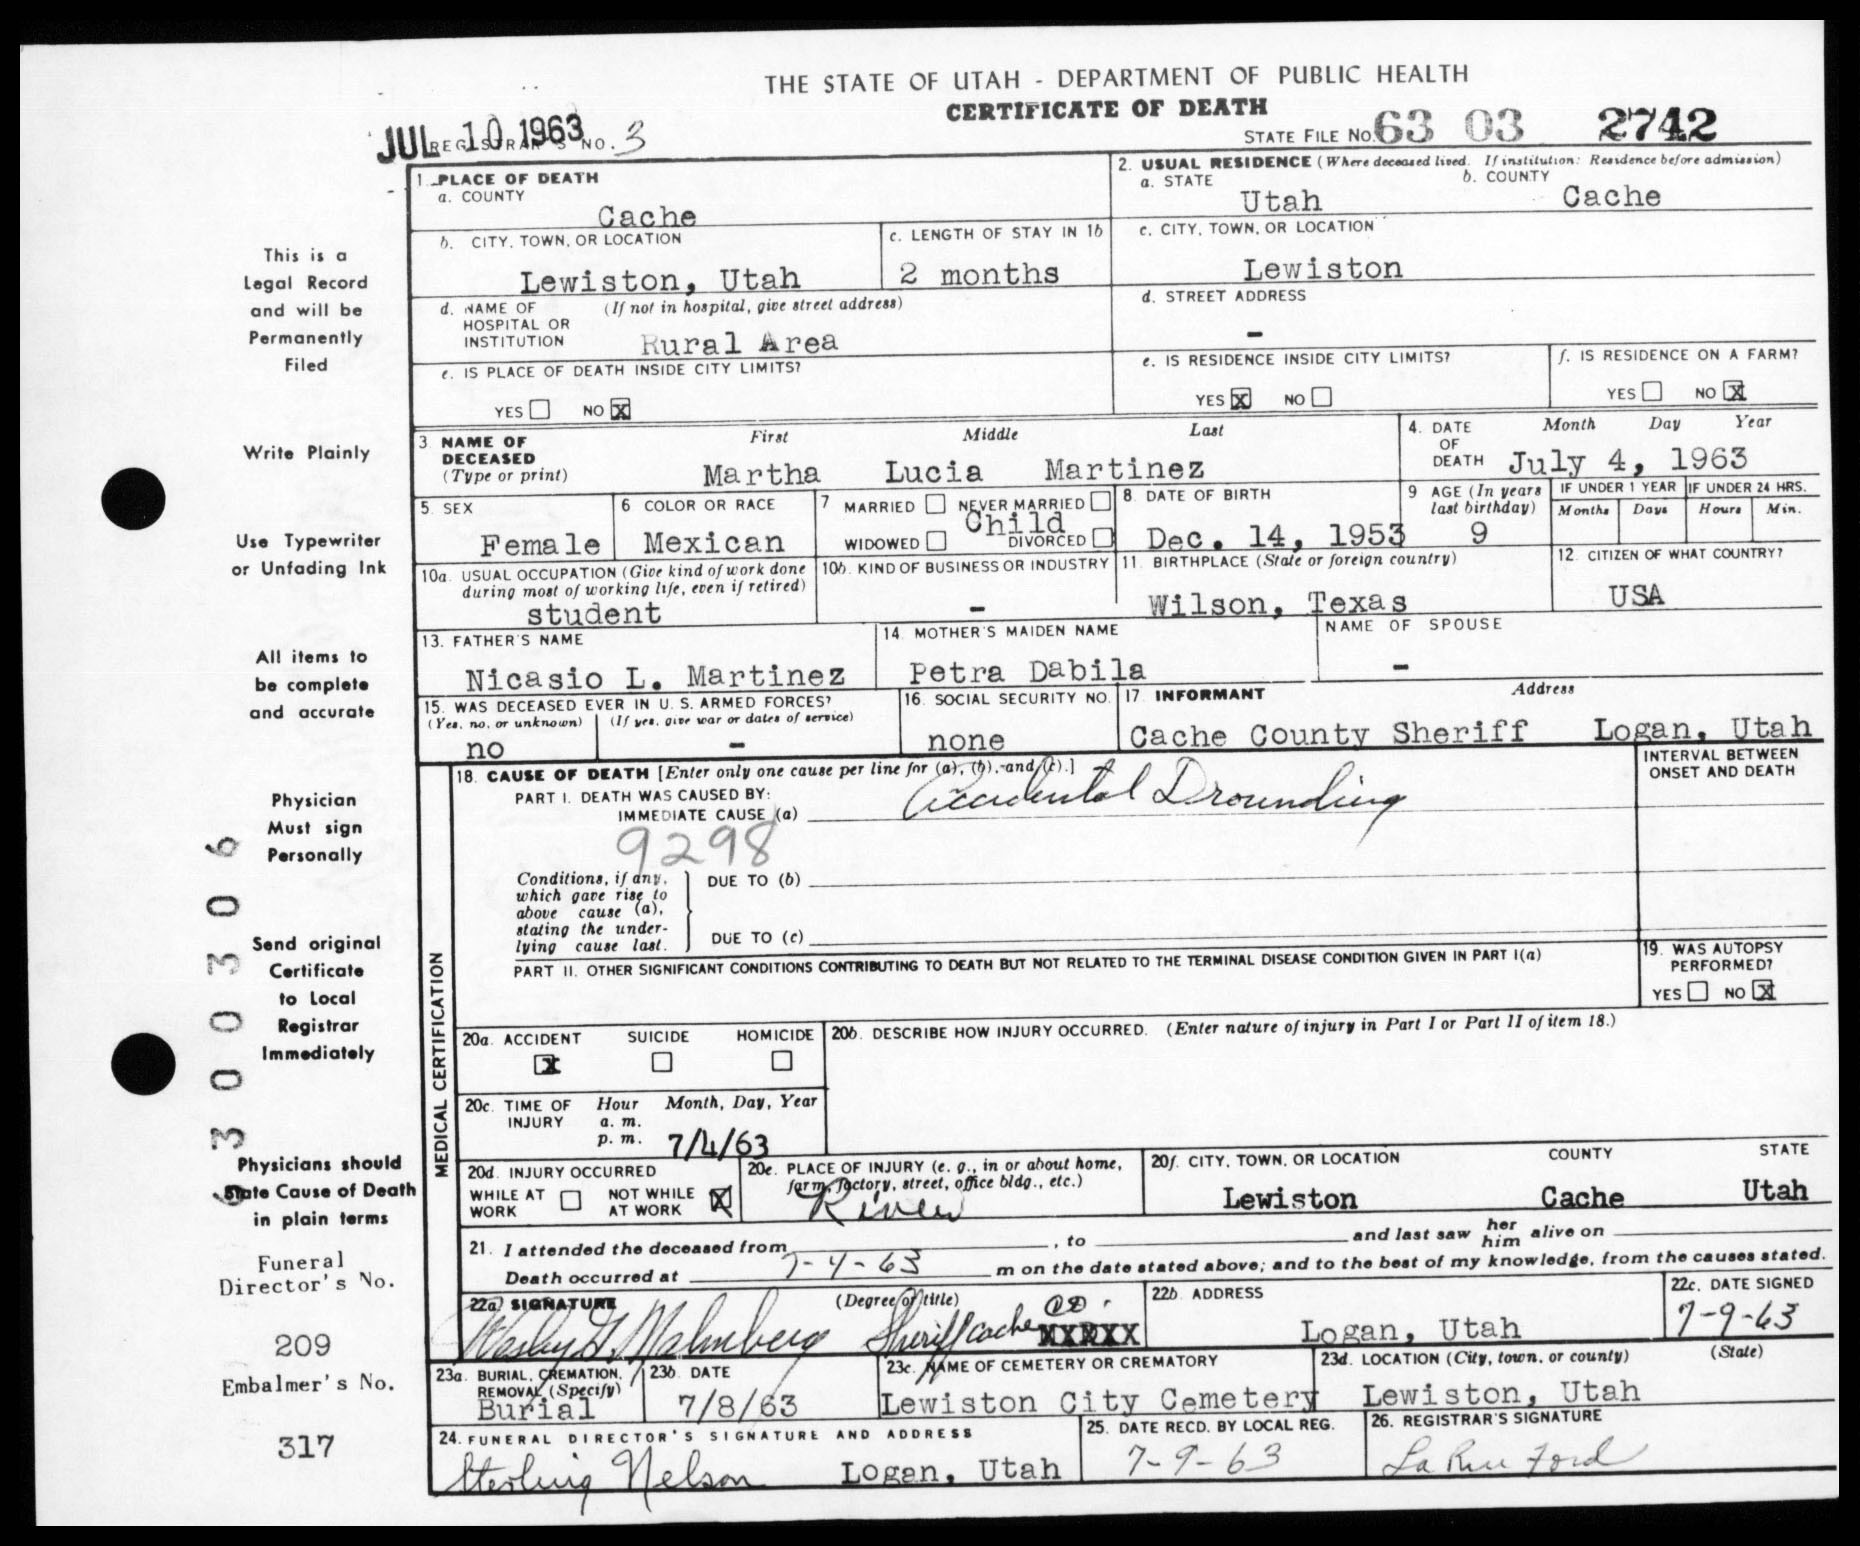 THE STATE OF UTAH - DEPARTMENT OF PUBLIC HEALTH
CERTIFICATE OF DEATH
JUL 10 1963
REGISTRAR'S NO. 3
STATE FILE NO. 63 03 2742
This is a
Legal Record
and will be
Permanently
Filed
Write Plainly
Use Typewriter
or Unfading Ink
All items to
be complete
and accurate
Physician
Must sign
Personally
Send original
Certificate
to Local
Registrar
Immediately
Physicians should
State Cause of Death
in plain terms
Funeral
Director's No.
209
Embalmer's No.
317
6300306
1. PLACE OF DEATH
a. COUNTY
Cache
2. USUAL RESIDENCE (Where deceased lived. If institution: Residence before admission)
a. STATE
Utah
b. COUNTY
Cache
b. CITY, TOWN, OR LOCATION
Lewiston, Utah
c. LENGTH OF STAY IN 1b
2 months
c. CITY, TOWN, OR LOCATION
Lewiston
d. NAME OF HOSPITAL OR INSTITUTION (If not in hospital, give street address)
Rural Area
d. STREET ADDRESS
-
e. IS PLACE OF DEATH INSIDE CITY LIMITS?
YES NO X
e. IS RESIDENCE INSIDE CITY LIMITS?
YES X NO
f. IS RESIDENCE ON A FARM?
YES NO X
3. NAME OF DECEASED (Type or print)
First Middle Last
Martha Lucia Martinez
4. DATE OF DEATH
Month Day Year
July 4, 1963
5. SEX
Female
6 COLOR OR RACE
Mexican
7 MARRIED NEVER MARRIED
Child
WIDOWED DIVORCED
8. DATE OF BIRTH
Dec. 14, 1953
9 AGE (In years last birthday)
9
IF UNDER 1 YEAR
Months Days
IF UNDER 24 HRS.
Hours Min.
10a. USUAL OCCUPATION (Give kind of work done during most of working life, even if retired)
student
10b. KIND OF BUSINESS OR INDUSTRY
-
11. BIRTHPLACE (State or foreign country)
Wilson, Texas
12. CITIZEN OF WHAT COUNTRY?
USA
13. FATHER'S NAME
Nicasio L. Martinez
14. MOTHER'S MAIDEN NAME
Petra Dabila
NAME OF SPOUSE
-
15. WAS DECEASED EVER IN U. S. ARMED FORCES?
(Yes, no, or unknown) (If yes, give war or dates of service)
no -
16. SOCIAL SECURITY NO.
none
17. INFORMANT Address
Cache County Sheriff Logan, Utah
MEDICAL CERTIFICATION
18. CAUSE OF DEATH [Enter only one cause per line for (a), (b), and (c).]
INTERVAL BETWEEN ONSET AND DEATH
PART I. DEATH WAS CAUSED BY:
IMMEDIATE CAUSE (a) Accidental Drounding
9298
Conditions, if any, which gave rise to above cause (a), stating the underlying cause last.
DUE TO (b)
DUE TO (c)
PART II. OTHER SIGNIFICANT CONDITIONS CONTRIBUTING TO DEATH BUT NOT RELATED TO THE TERMINAL DISEASE CONDITION GIVEN IN PART I(a)
19. WAS AUTOPSY PERFORMED?
YES NO X
20a. ACCIDENT SUICIDE HOMICIDE
X
20b. DESCRIBE HOW INJURY OCCURRED. (Enter nature of injury in Part I or Part II of item 18.)
20c. TIME OF INJURY
Hour Month, Day, Year
a. m.
p. m. 7/4/63
20d. INJURY OCCURRED
WHILE AT WORK NOT WHILE AT WORK X
20e. PLACE OF INJURY (e. g., in or about home, farm, factory, street, office bldg., etc.)
River
20f. CITY, TOWN, OR LOCATION COUNTY STATE
Lewiston Cache Utah
21. I attended the deceased from , to and last saw her him alive on
Death occurred at 7-4-63 m on the date stated above; and to the best of my knowledge, from the causes stated.
22a. SIGNATURE (Degree or title)
Wesley G. Malmberg Sheriff Cache Co.
22b. ADDRESS
Logan, Utah
22c. DATE SIGNED
7-9-63
23a. BURIAL, CREMATION, REMOVAL (Specify)
Burial
23b. DATE
7/8/63
23c. NAME OF CEMETERY OR CREMATORY
Lewiston City Cemetery
23d. LOCATION (City, town, or county) (State)
Lewiston, Utah
24. FUNERAL DIRECTOR'S SIGNATURE AND ADDRESS
Sterling Nelson Logan, Utah
25. DATE RECD. BY LOCAL REG.
7-9-63
26. REGISTRAR'S SIGNATURE
La Rue Ford